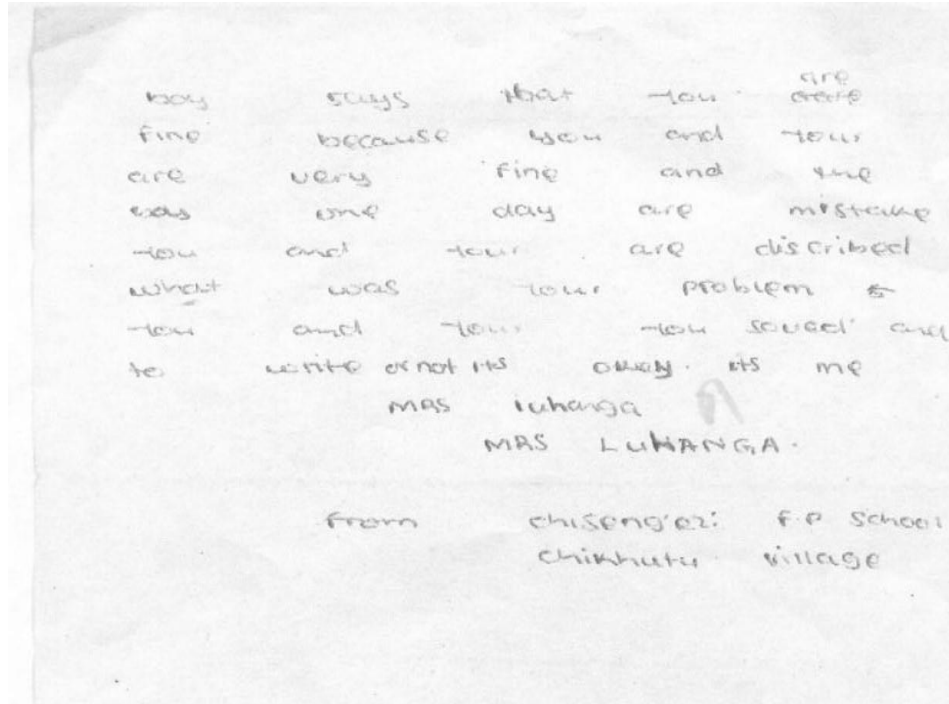 boy says that you are
fine because you and your
are very fine and the
was one day are mistake
you and your are discribed
what was your problem
you and your you soued and
to write or not its okay. its me
MRS luhanga
MRS LUHANGA.
From chisengezi F.P School
Chikhutu village